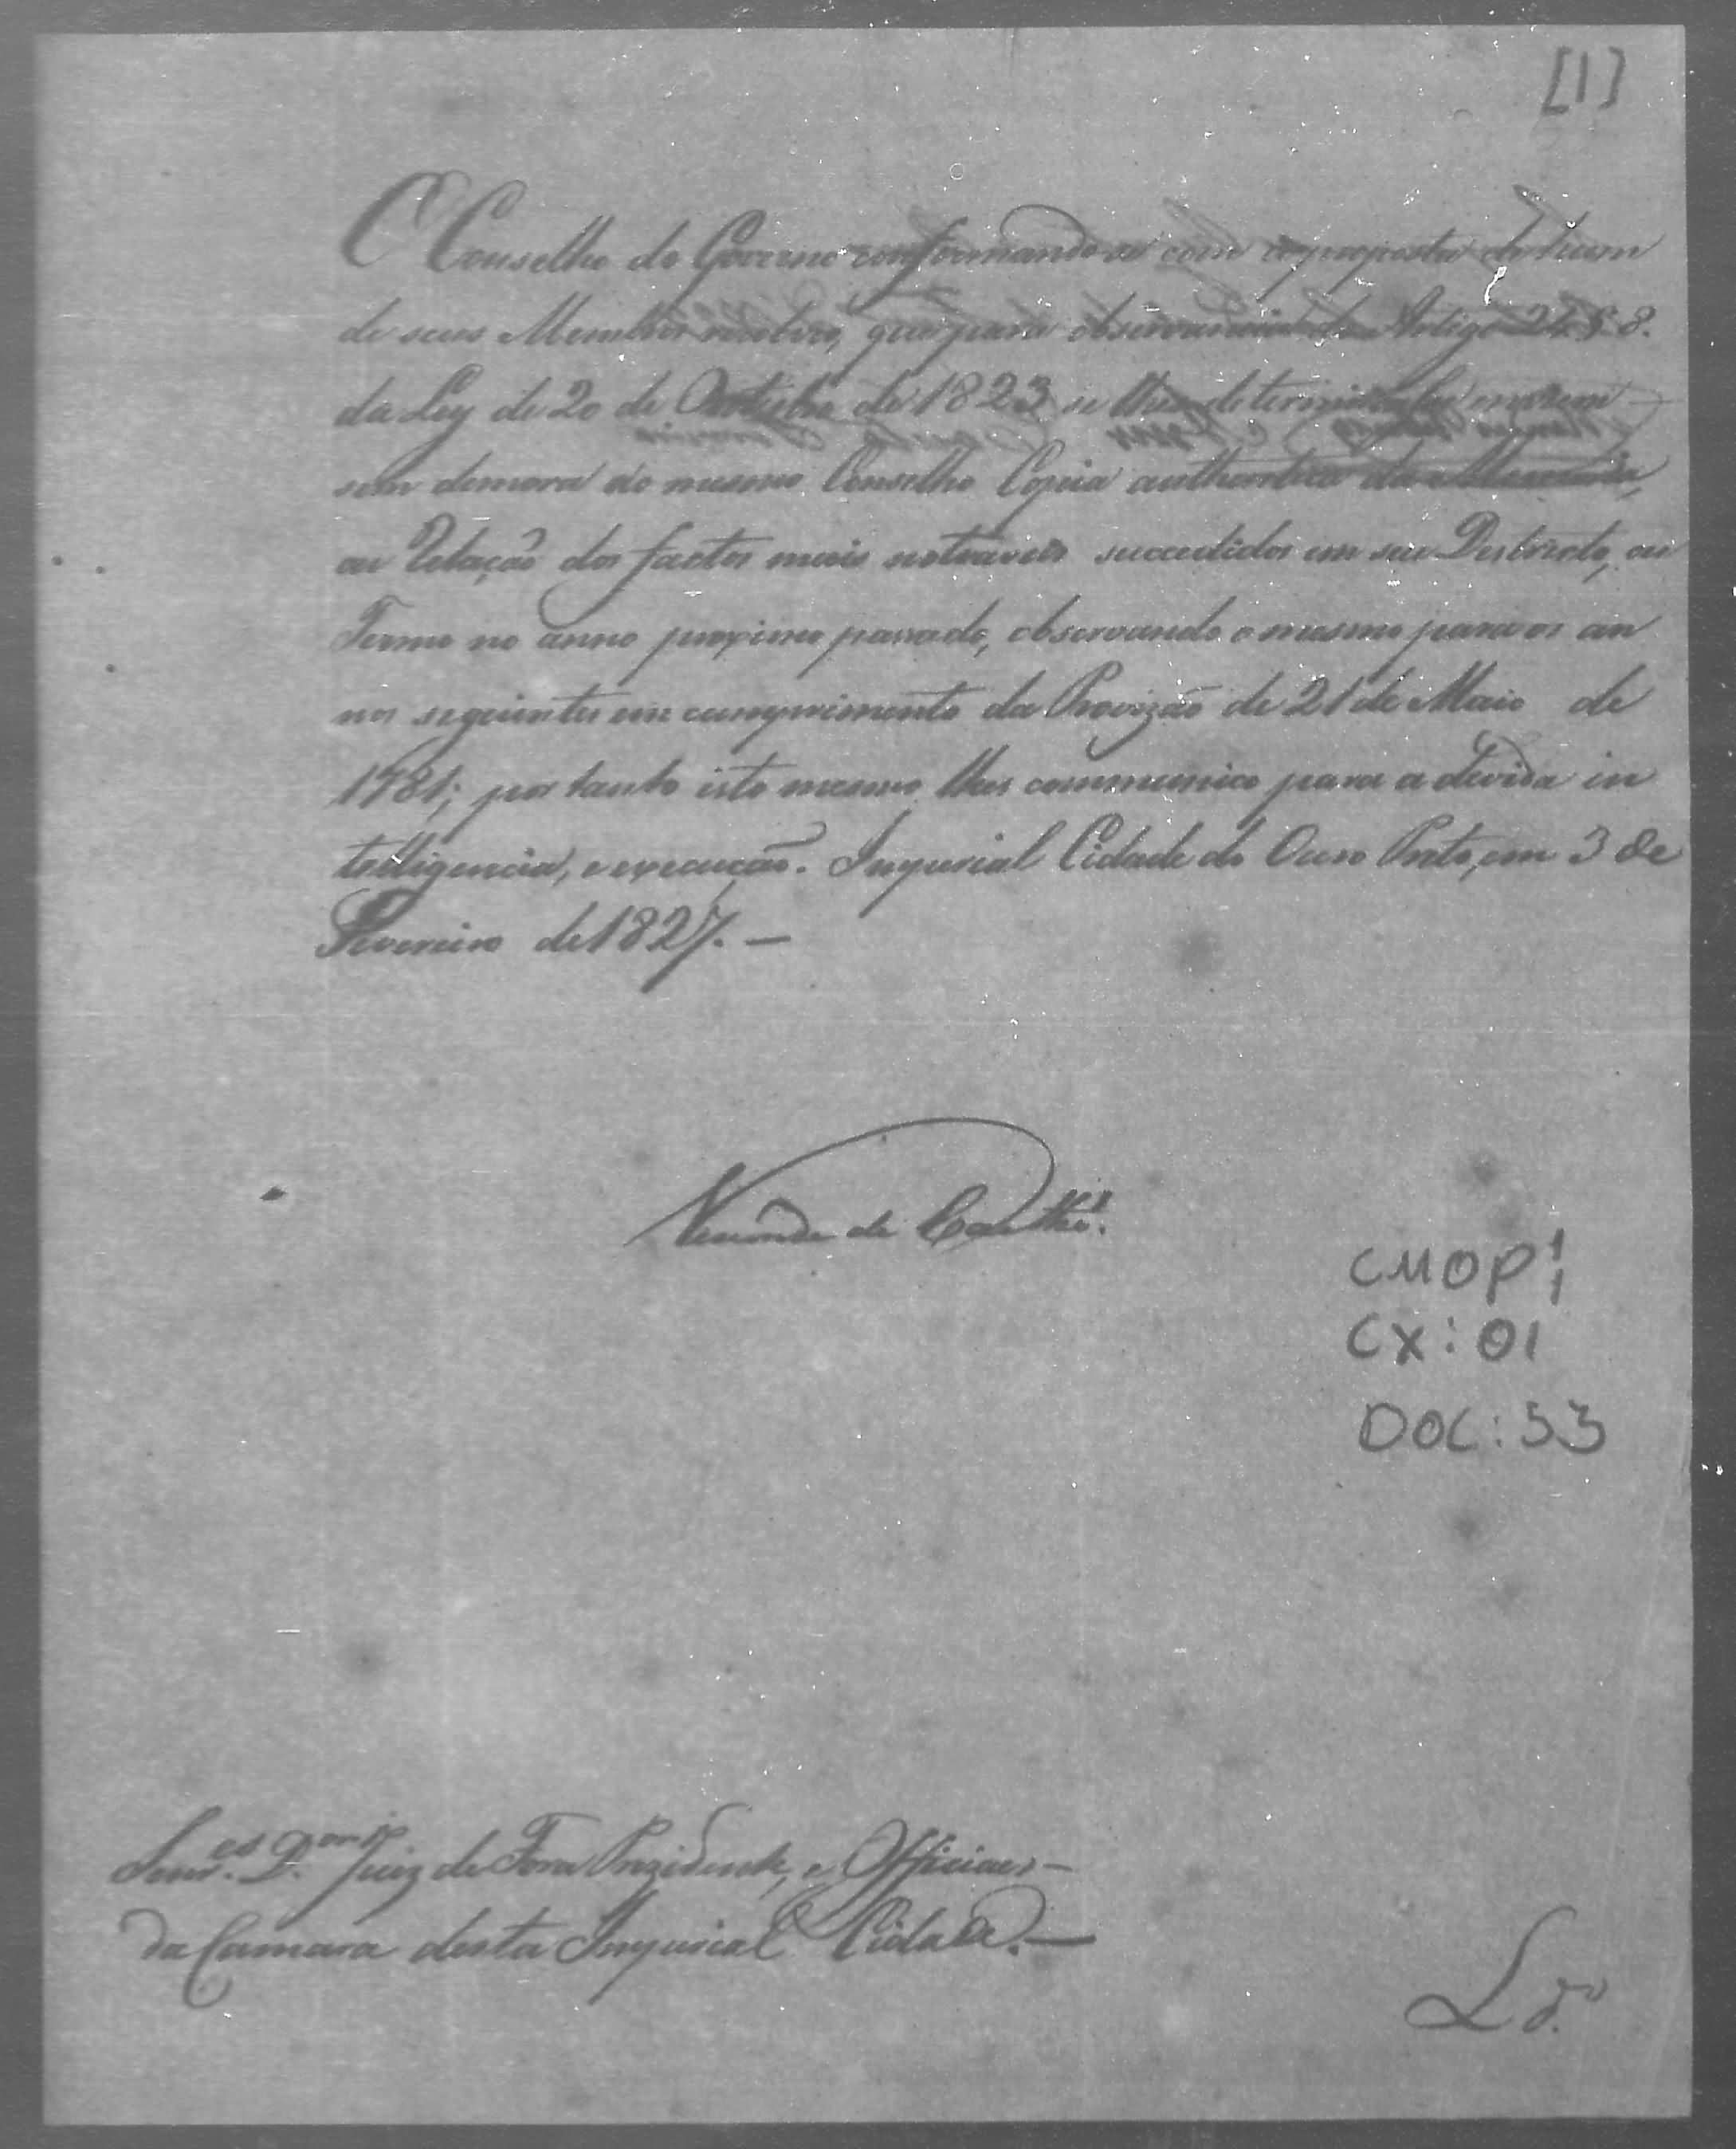 [1]
O Conselho do Governo conformando-se com a proposta de hum
de seus Membros resolveo, que para observancia do Artigo 24 § 8.
da Ley de 20 de Outubro de 1823 se lhes determinasse
sem demora ao mesmo Conselho Copia authentica da Memoria,
ou Relação dos factos mais notaveis succedidos em seu Destricto, ou
Termo no anno proximo passado, observando o mesmo para os an
nos seguintes em cumprimento da Provizão de 21 de Maio de
1781; por tanto isto mesmo lhes communico para a devida in
telligencia, e execução. Imperial Cidade do Ouro Preto, em 3 de
Fevereiro de 1827. —
Visconde de Caethé.
CMOP 1/1
CX: 01
DOC: 53
Snres. Dor. Juiz de Fora Prezidente, e Officiaes —
da Camara desta Imperial Cidade. —